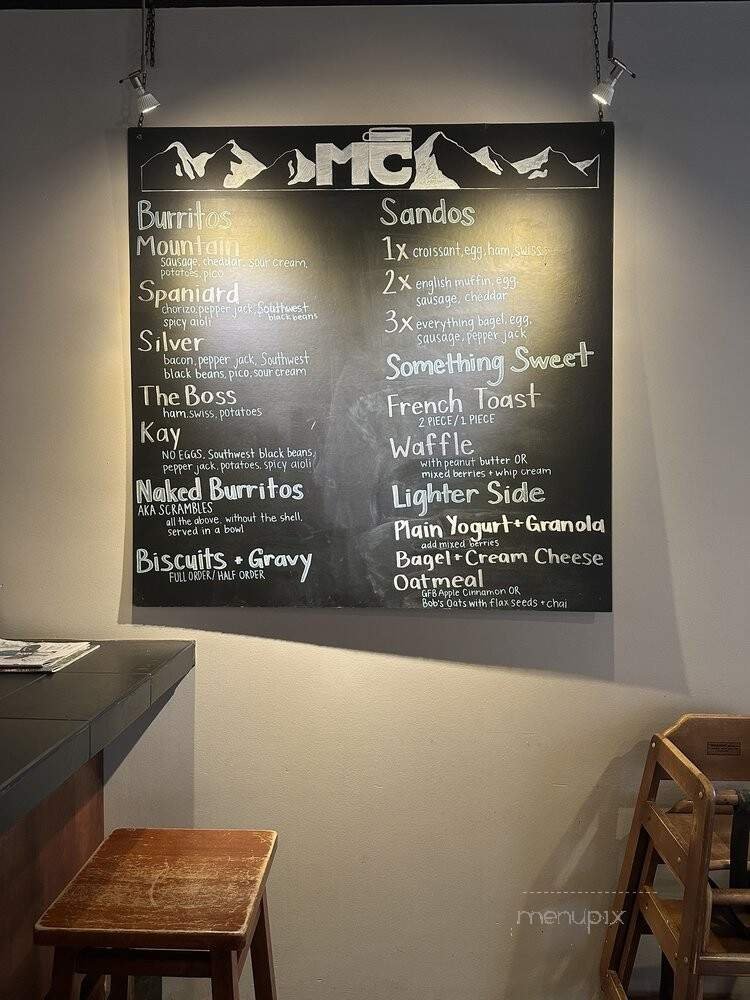 MC
Burritos
Mountain
sausage, cheddar, sour cream,
potatoes, pico
Spaniard
chorizo, pepper jack, Southwest
black beans
spicy aioli
Silver
bacon, pepper jack, Southwest
black beans, pico, sour cream
The Boss
ham, swiss, potatoes
Kay
NO EGGS, Southwest black beans,
pepper jack, potatoes, spicy aioli
Naked Burritos
AKA SCRAMBLES
all the above, without the shell,
served in a bowl
Biscuits + Gravy
FULL ORDER / HALF ORDER
Sandos
1x croissant, egg, ham, swiss
2x english muffin, egg,
sausage, cheddar
3x everything bagel, egg,
sausage, pepper jack
Something Sweet
French Toast
2 PIECE / 1 PIECE
Waffle
with peanut butter OR
mixed berries + whip cream
Lighter Side
Plain Yogurt + Granola
add mixed berries
Bagel + Cream Cheese
Oatmeal
GFB Apple Cinnamon OR
Bob's Oats with flax seeds + chai
menupix